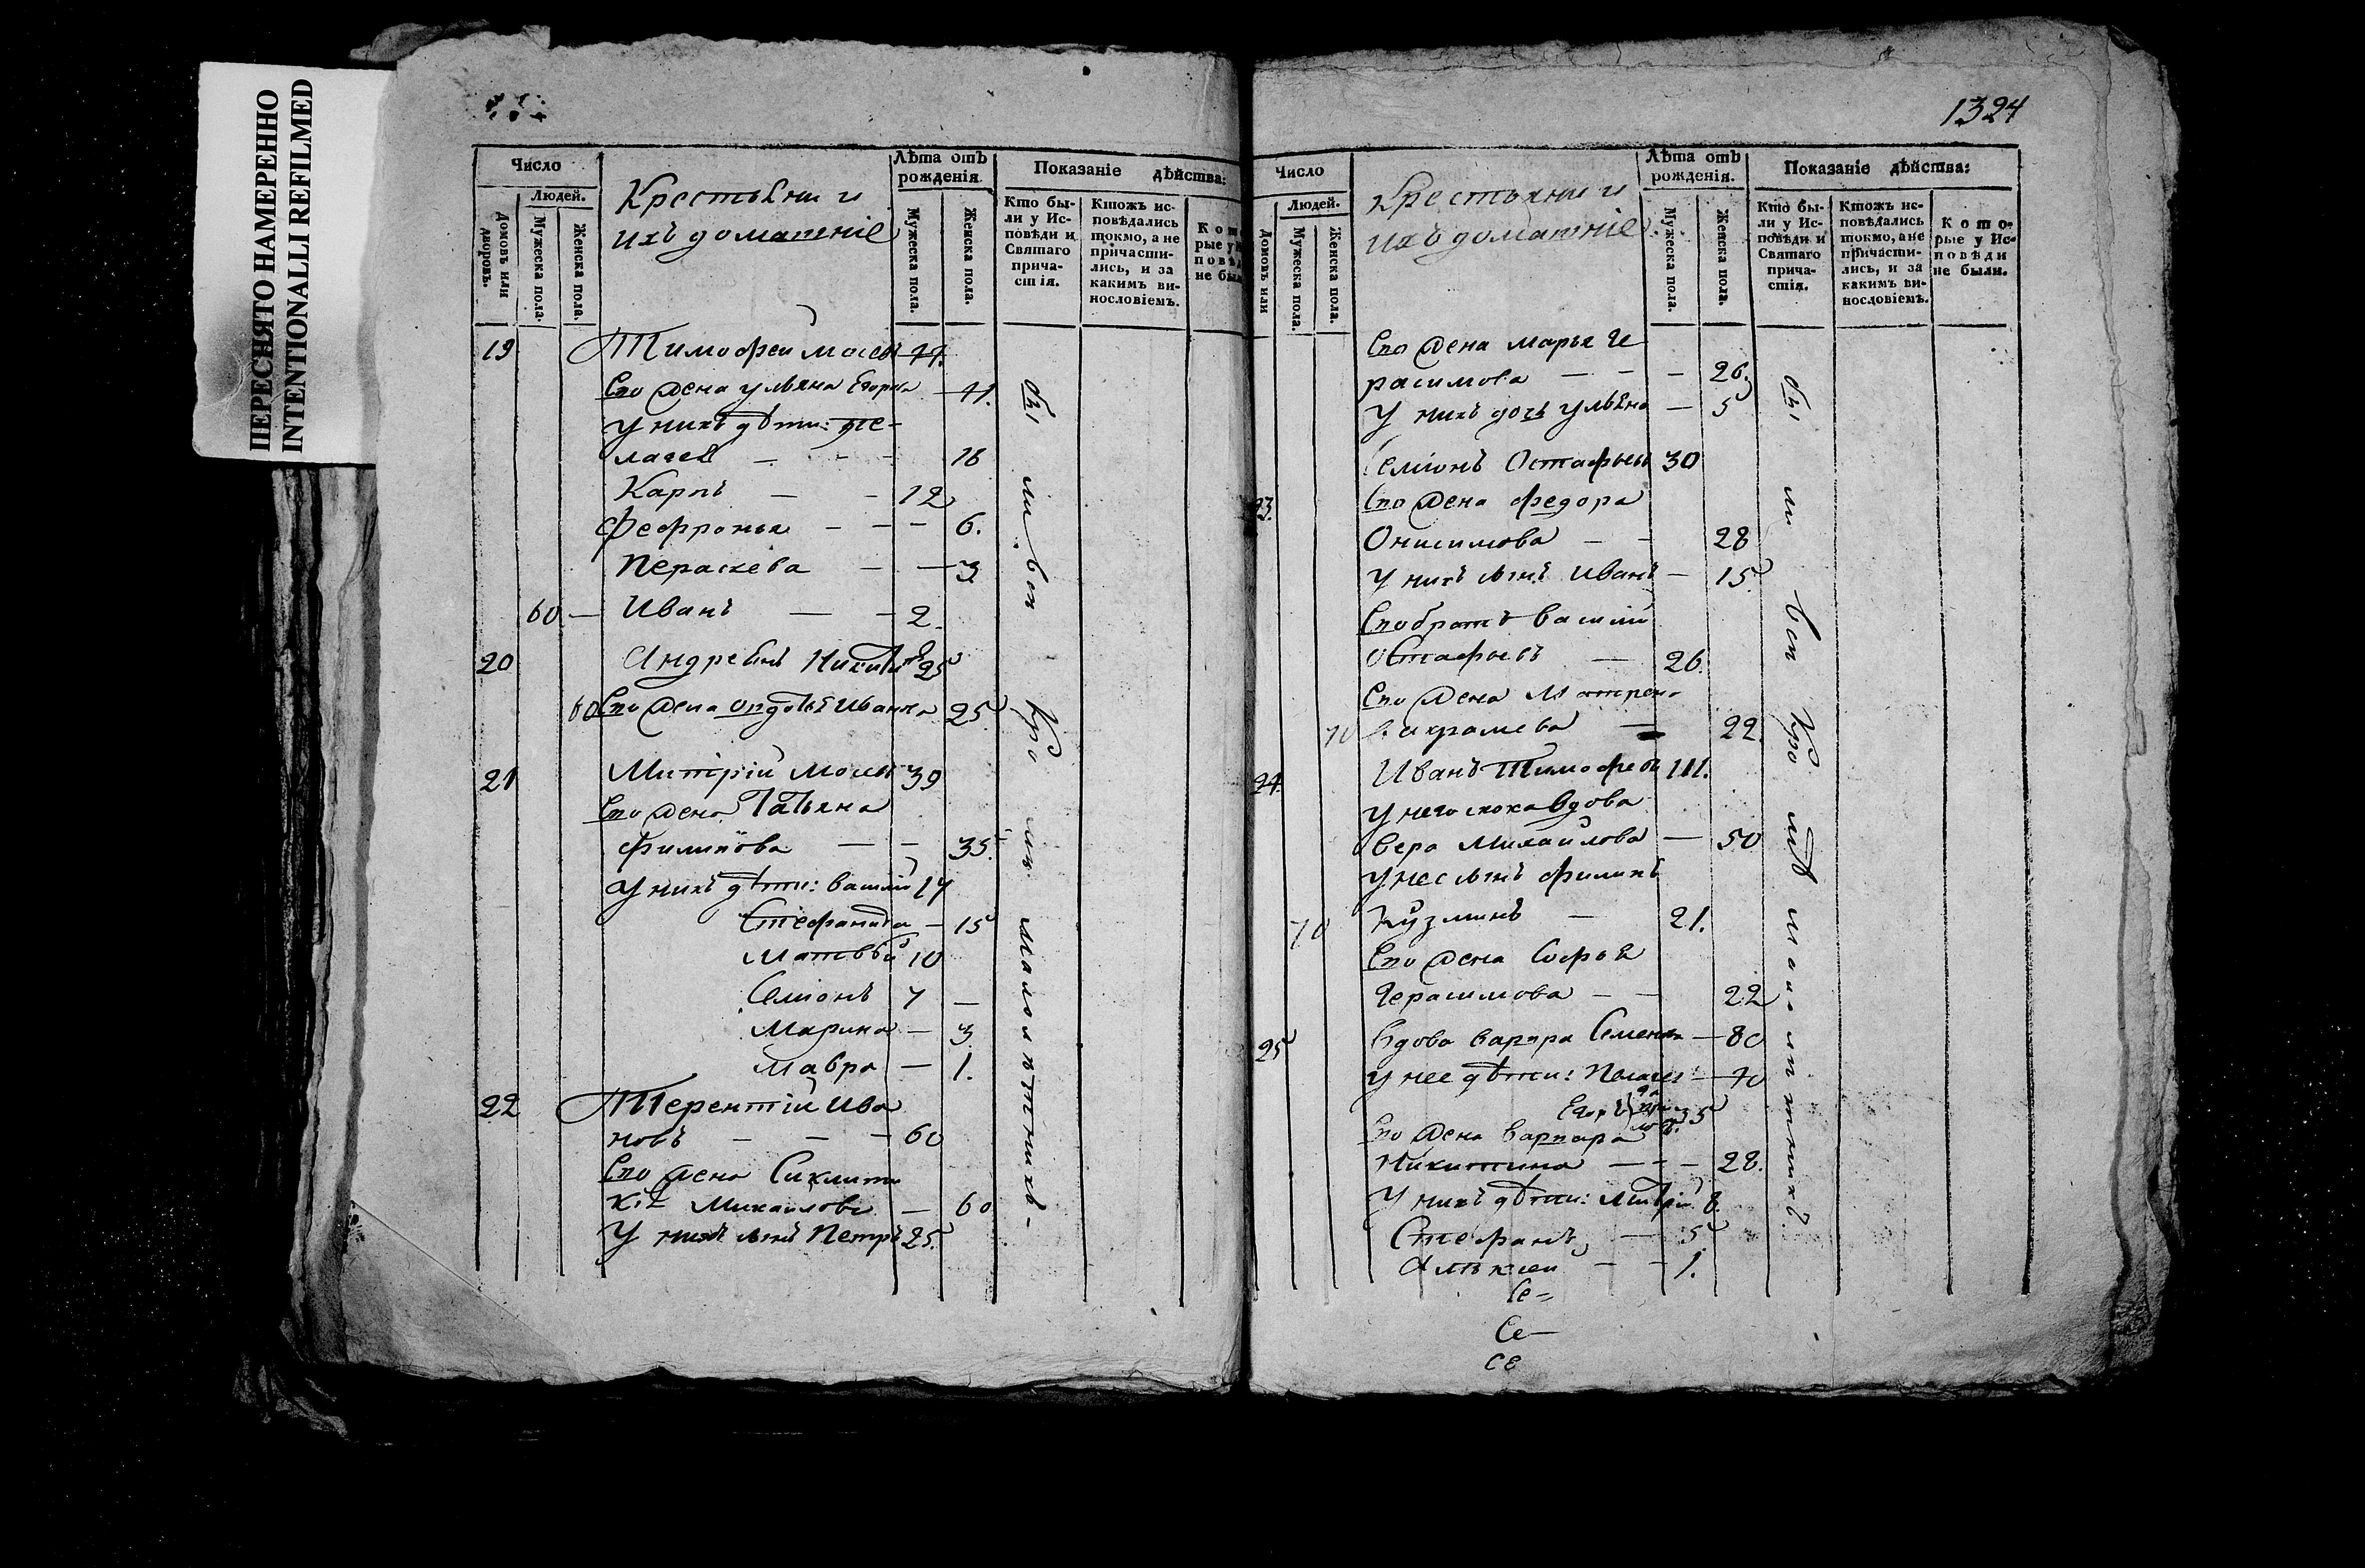 ПЕРЕСНЯТО НАМЕРЕННО
INTENTIONALLI REFILMED
Число
Людей.
Домовъ или дворовъ.
Мужеска пола.
Женска пола.
Крестьяни и
ихъ домашніе
Лѣта отъ рожденія
Мужеска пола.
Женска пола.
Показаніе дѣйства:
Кто бы-
ли у Ис-
повѣди и
Святаго
прича-
стія.
Ктожъ ис-
повѣдались
токмо, а не
причасти-
лись, и за
какимъ ви-
нословіемъ.
19 Тимофей Мосеев 44.
Его жена Ульяна Егорова 41.
У нихъ дѣти: Пе-
лагея 18
Карпъ 12
Фефронья 6.
Пераскева 3
60 Иванъ 2.
20 Андреянъ Никитинъ 25
60 Его жена Авдотья Иванова 25
21 Митрій Мосеев 39
Его жена Татьяна
Филипова 35.
У нихъ дѣти: Василій 17
Стефанида 15
Матвѣй 10
Семіонъ 7
Марина 3
Мавра 1.
22 Терентій Ива
новъ 60
Его жена
Михайлова 60
У нихъ сынъ Петръ 25.
бы ли вси кро мѣ малолѣтнихъ
1324
Число
Людей.
Домовъ или
Мужеска пола.
Женска пола.
Крестьяни и
ихъ домашніе
Лѣта отъ рожденія.
Мужеска пола.
Женска пола.
Показаніе дѣйства:
Кто бы-
ли у Ис-
повѣди и
Святаго
прича-
стія.
Ктожъ ис-
повѣдались
токмо, а не
причасти-
лись, и за
какимъ ви-
нословіемъ.
К о т о-
рые у Ис-
п о в ѣ д и
не были.
Его жена Марья Ге
расимова 26
У нихъ дочь Ульяна 5
Семіонъ Остафьевъ 30
23. Его жена Федора
Онисимова 28
У нихъ сынъ Иванъ 15
Его братъ Василій
Остафьевъ 26.
Его жена Матрена
22.
24. Иванъ Тимофеевъ
У него сноха вдова
Вера Михайлова 50
У нее сынъ Филипъ
70 Кузминъ 21.
Его жена Софья
Герасимова 22
25 Вдова Варвара Семенова 80
У нее дѣти: Пелагея 40
Егоръ 35
Его жена Варвара
Никитина 28.
У нихъ дѣти: Митрій 8.
Стефанъ 5
Алѣксей 1.
Се-
Се-
се
бы ли вси кро мѣ малолѣтнихъ.